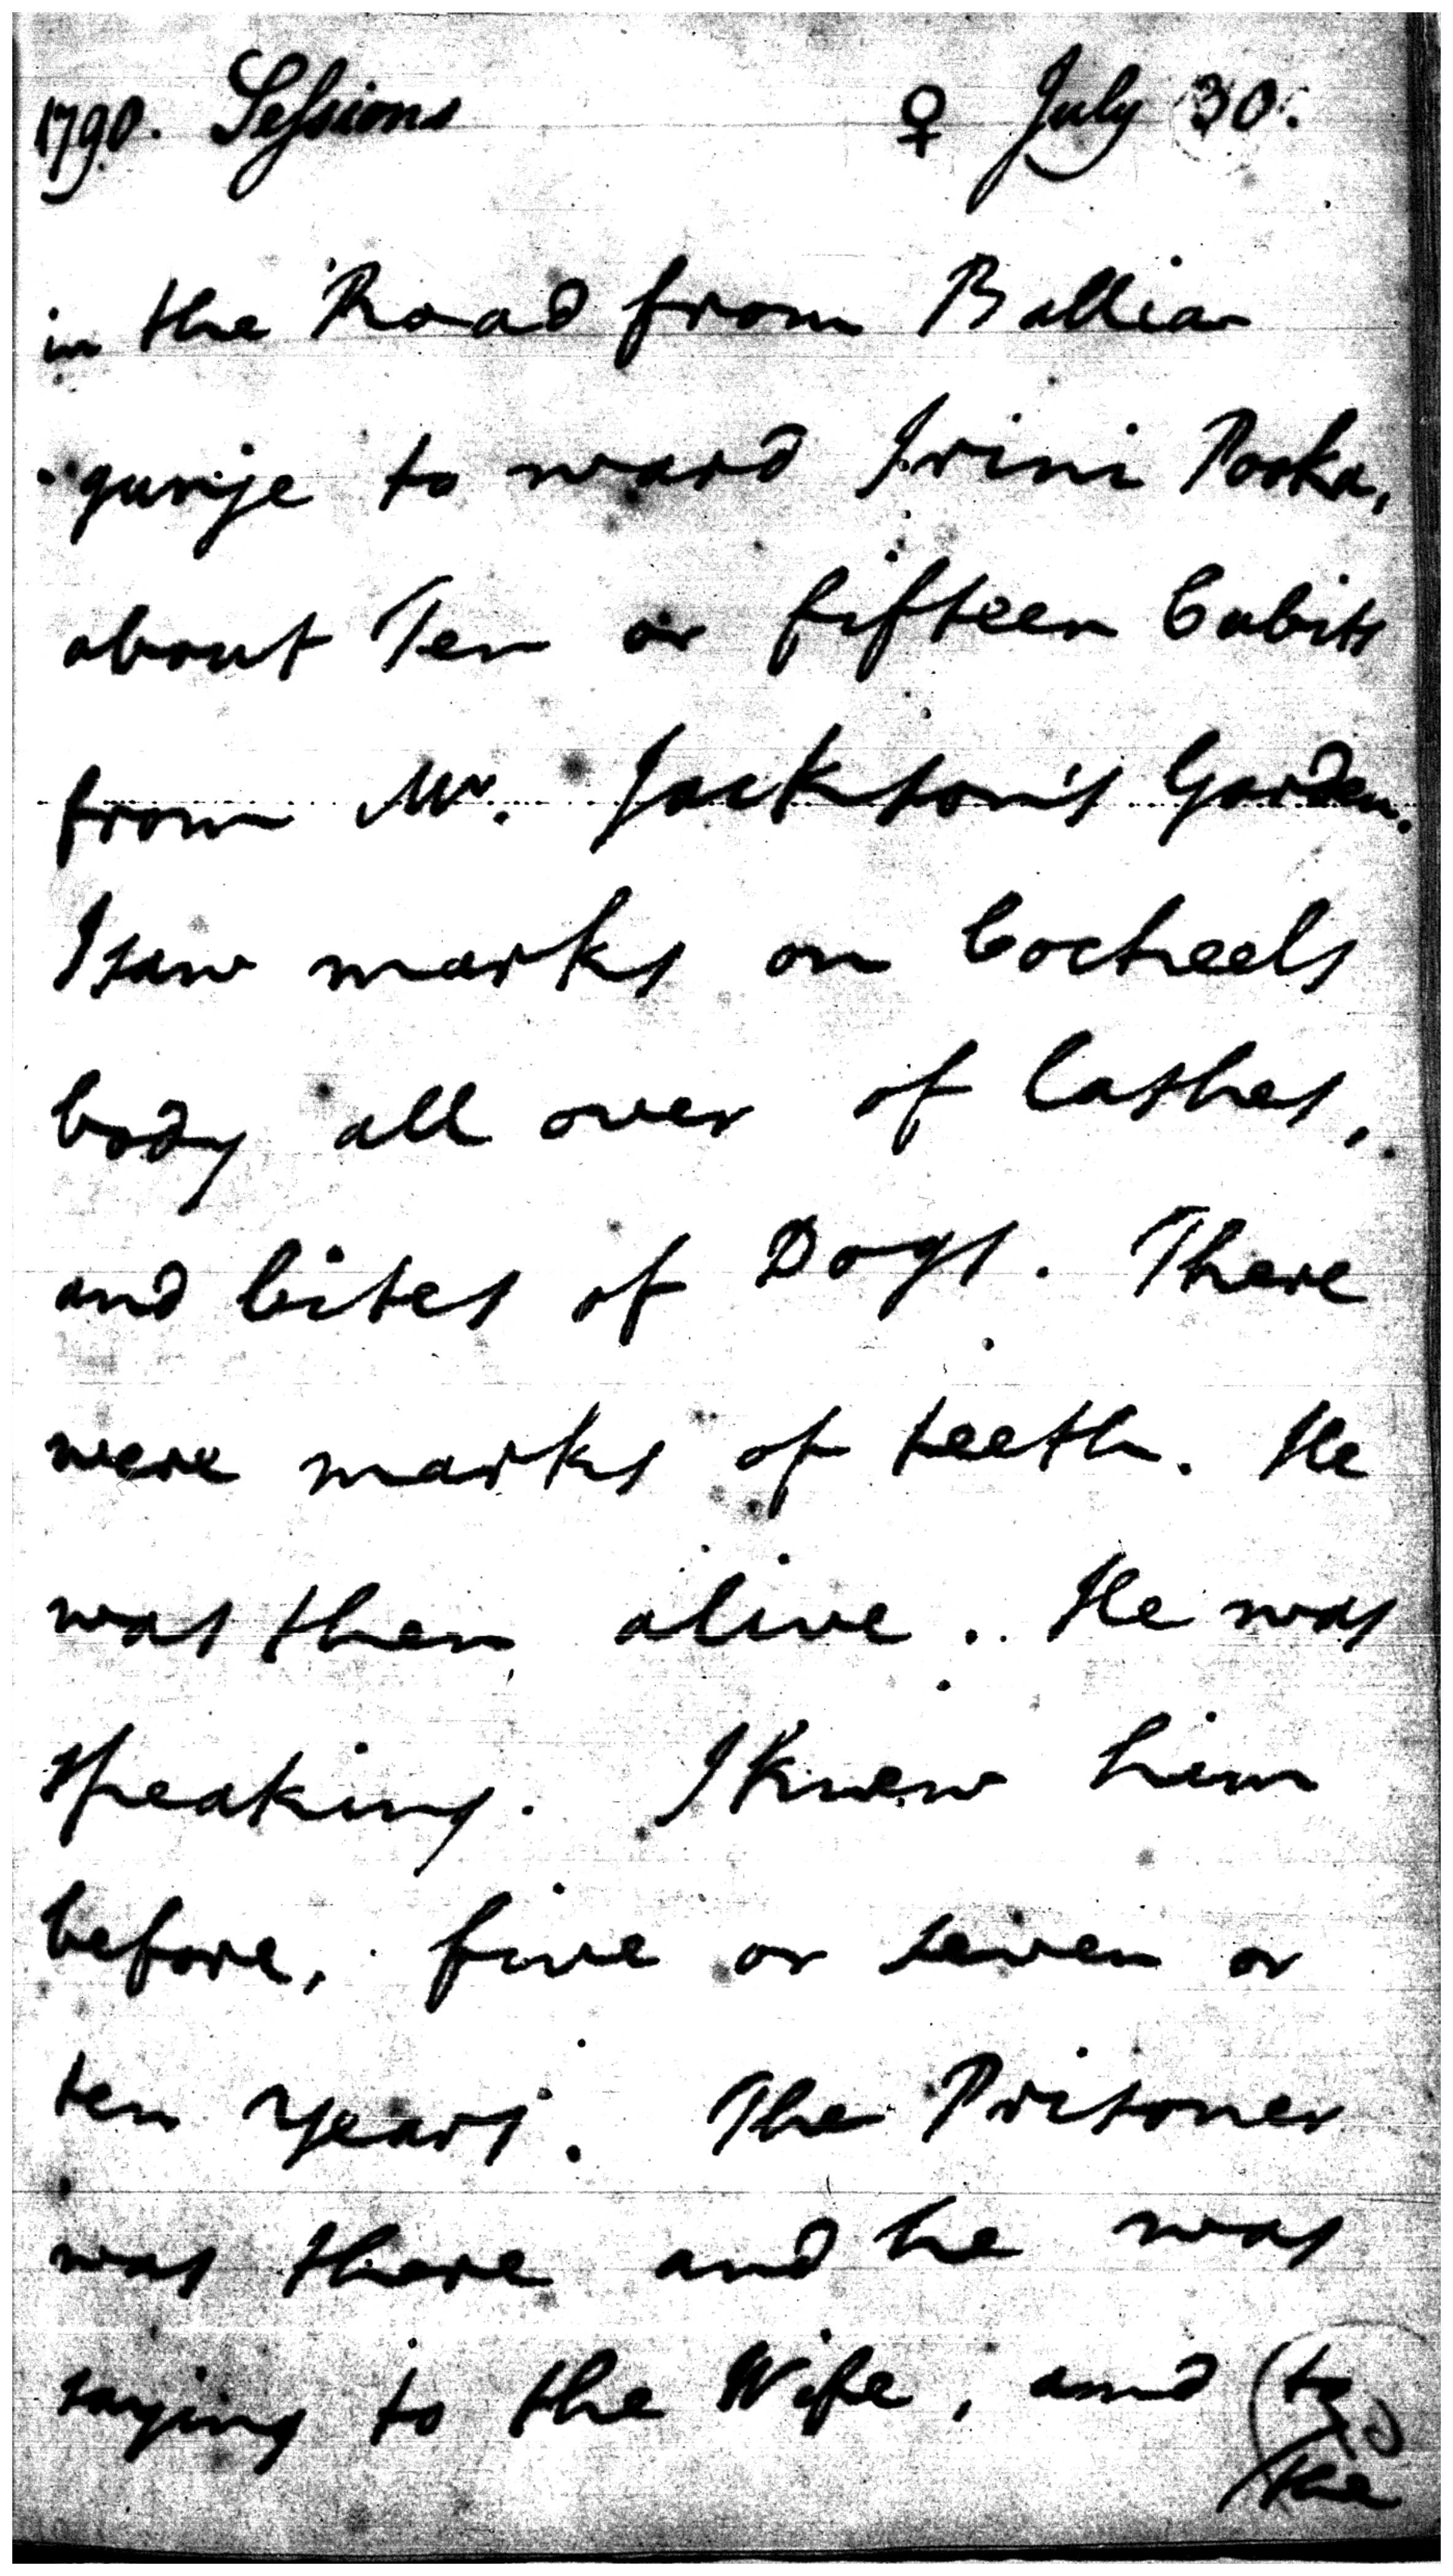 1790. Sessions ♀ July 30.
in the Road from Ballia
gunje to ward Irini Pooka,
about Ten or fifteen Cubits
from Mr. Jackson's Garden.
I saw marks on Cocheels
body all over of lashes,
and bites of Dogs. There
were marks of teeth. He
was then alive. He was
speaking. I knew him
before, five or seven or
ten years. The Prisoner
was there and he was
saying to the Wife, and to
the